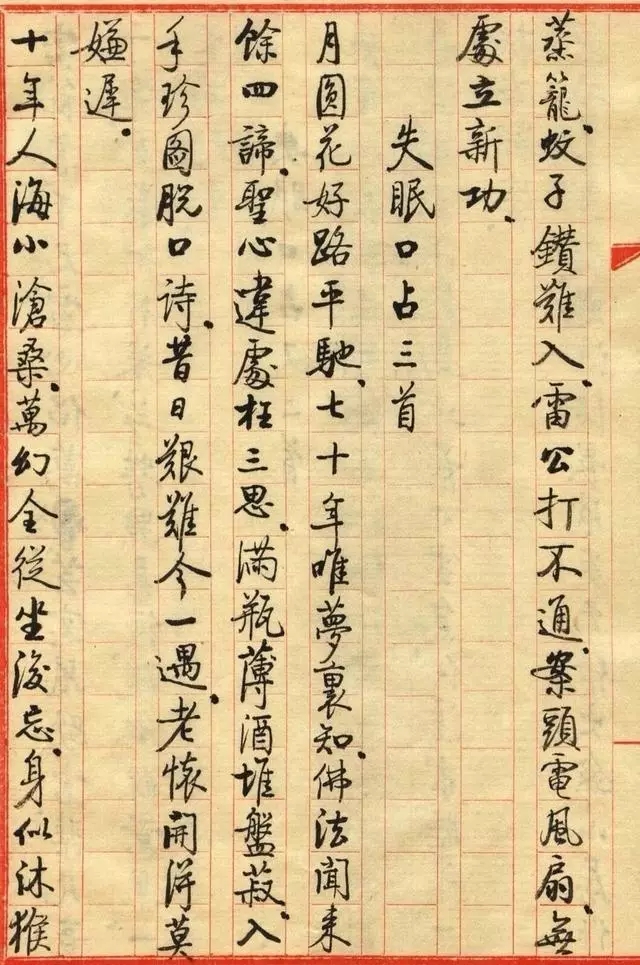 蒸籠、蚊子鑽難入、雷公打不通、案頭電風扇、無
處立新功、
失眠口占三首
月圓花好路平馳、七十年唯夢裏知、佛法聞来
餘四諦、聖心違處枉三思、滿瓶薄酒堆盤菽、入
手珍圖脫口诗、昔日艱難今一遇、老懷開得莫
嫌遲、
十年人海小滄桑、萬幻全從坐後忘、身似沐猴